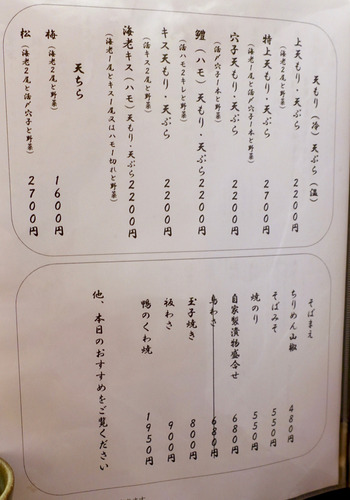 天もり（冷）天ぷら（温）
上天もり・天ぷら 2200円
（海老2尾と野菜）
特上天もり・天ぷら 2700円
（海老1尾と活〆穴子1本と野菜）
穴子天もり・天ぷら 2200円
（活〆穴子1本と野菜）
鱧（ハモ）天もり・天ぷら 2200円
（活ハモ2キレと野菜）
キス天もり・天ぷら 2200円
（活キス2尾と野菜）
海老キス（ハモ）天もり・天ぷら 2200円
（海老1尾とキス1尾又はハモ1切れと野菜）
天ちら
梅（海老2尾と野菜） 1600円
松（海老2尾と活〆穴子と野菜） 2700円
そばまえ
ちりめん山椒 480円
そばみそ 550円
焼のり 550円
自家製漬物盛合せ 680円
鳥わさ 680円
玉子焼き 800円
板わさ 900円
鴨のくわ焼 1950円
他、本日のおすすめをご覧ください